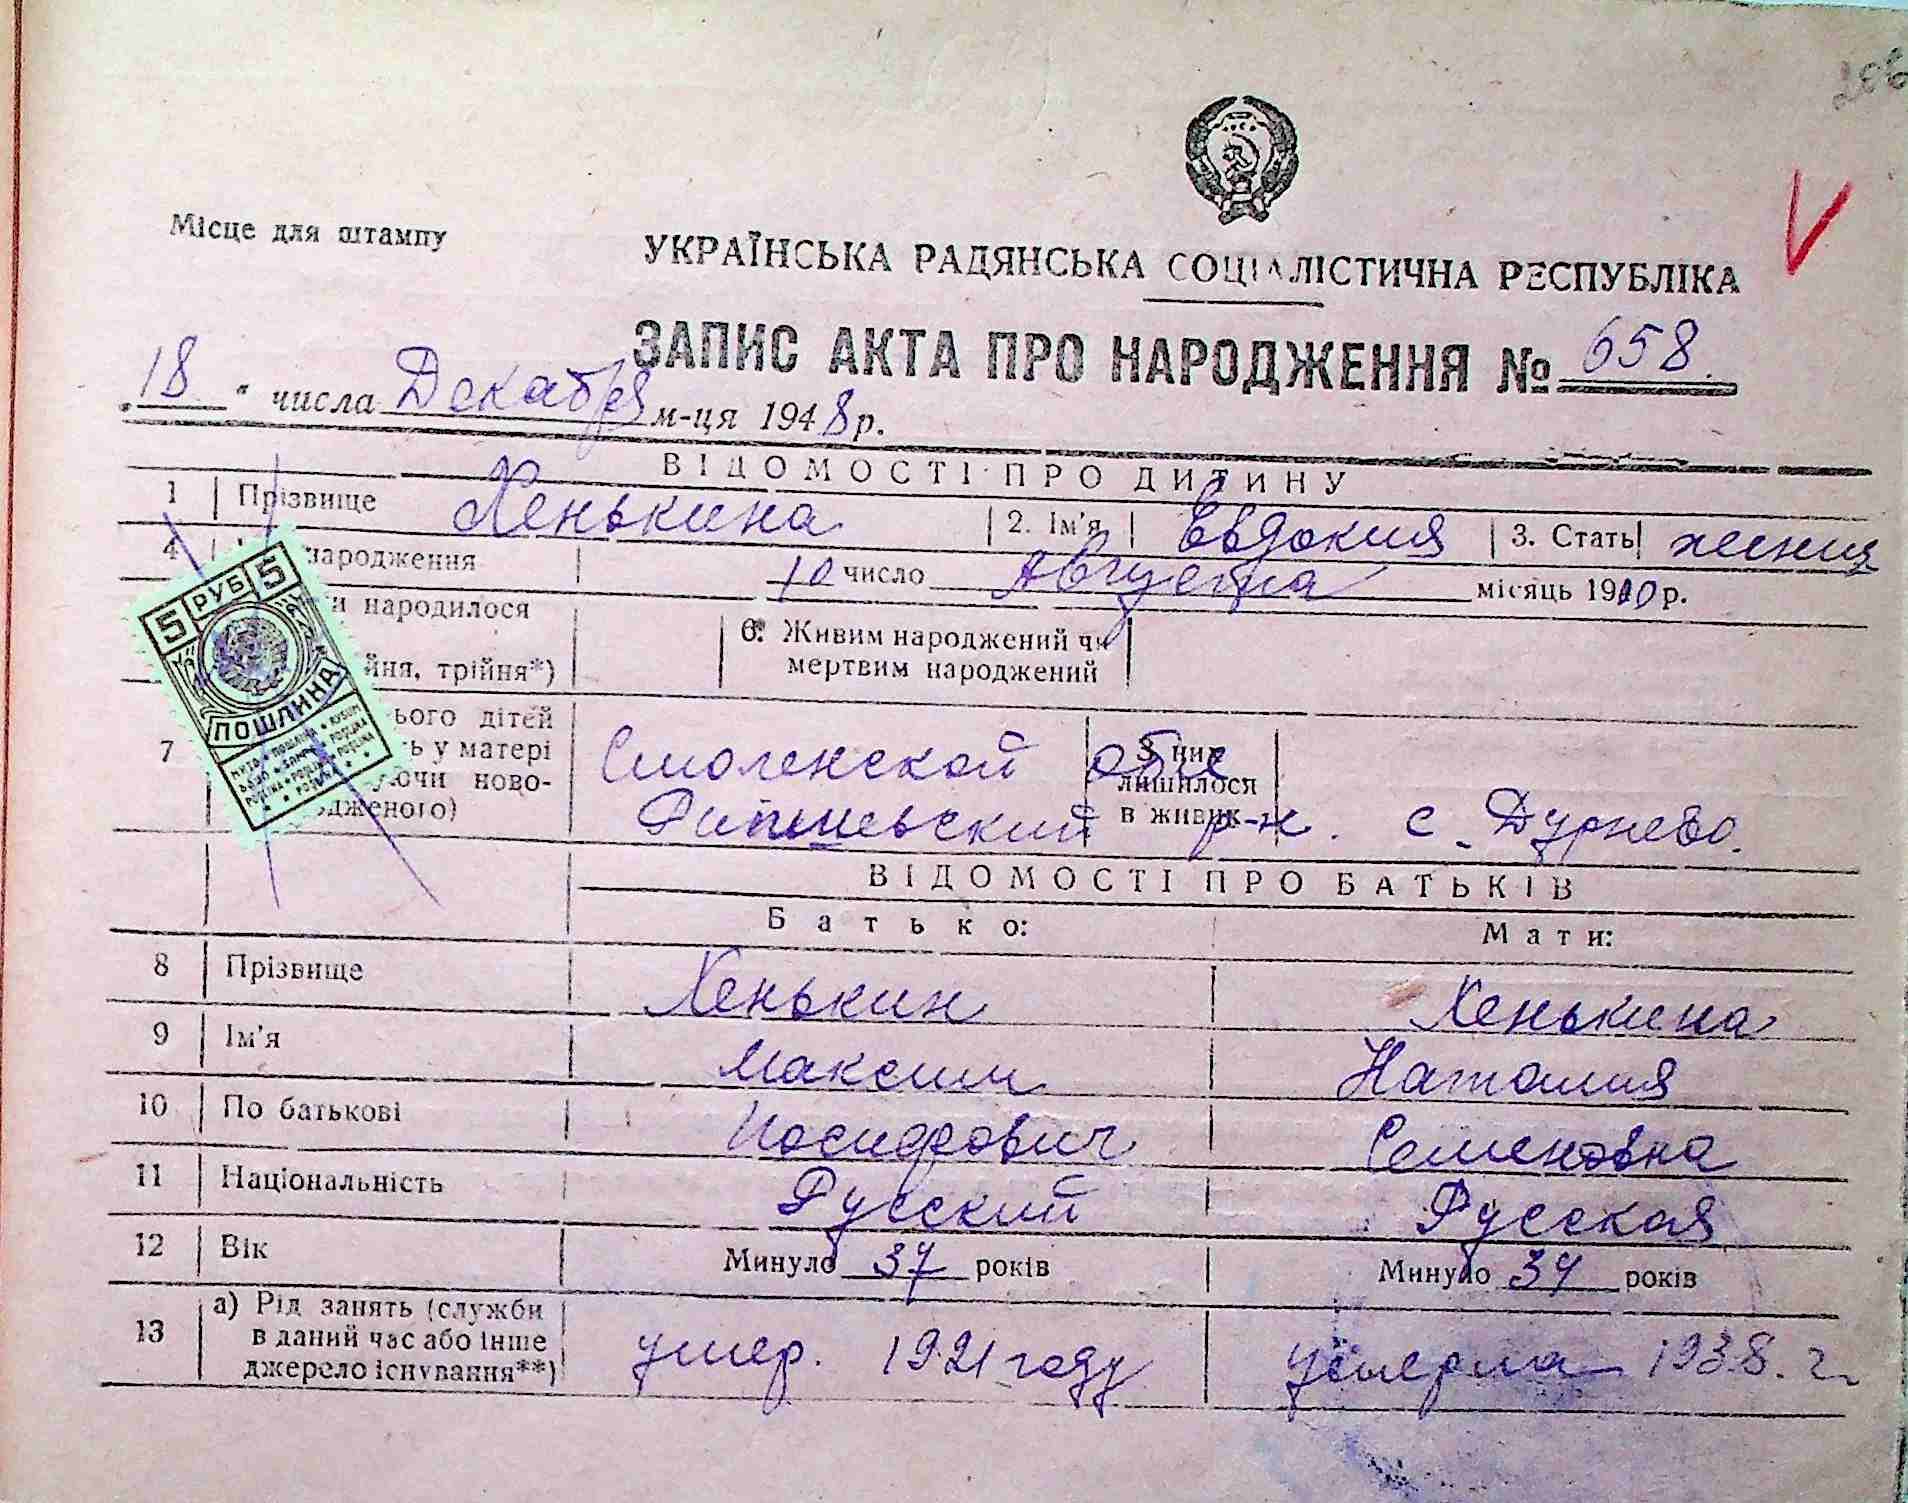 206
Місце для штампу
УКРАЇНСЬКА РАДЯНСЬКА СОЦІАЛІСТИЧНА РЕСПУБЛІКА
ЗАПИС АКТА ПРО НАРОДЖЕННЯ № 658.
„18" числа Декабря м-ця 1948 р.
ВІДОМОСТІ ПРО ДИТИНУ
1 Прізвище Хенькина 2. Ім'я Евдокия 3. Стать
4 народження 10 число Августа місяць 1910 р.
и народилося
йня, трійня*)
6. Живим народжений чи
мертвим народжений
5 РУБ 5
ПОШЛИНА
7 ього дітей
ь у матері
ючи ново-
дженого)
З них
лишилося
в живих
Смоленской обл
р-н. с. Дурнево.
ВІДОМОСТІ ПРО БАТЬКІВ
Батько: Мати:
8 Прізвище Хенькин Хенькина
9 Ім'я Максим Наталия
10 По батькові Семеновна
11 Національність Русский Русская
12 Вік Минуло 37 років Минуло 34 років
13 а) Рід занять (служби
в даний час або інше
джерело існування**)
умер. 1921 году умерла 1938. г.